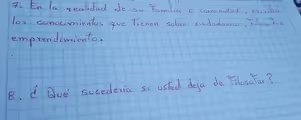 7. En la realidad de su familia o comunidad, escriba
los conocimientos que tienen sobre ciudadanía, filosofía
emprendimiento.
8. ¿ Qué sucedería si usted deja de filosofar?